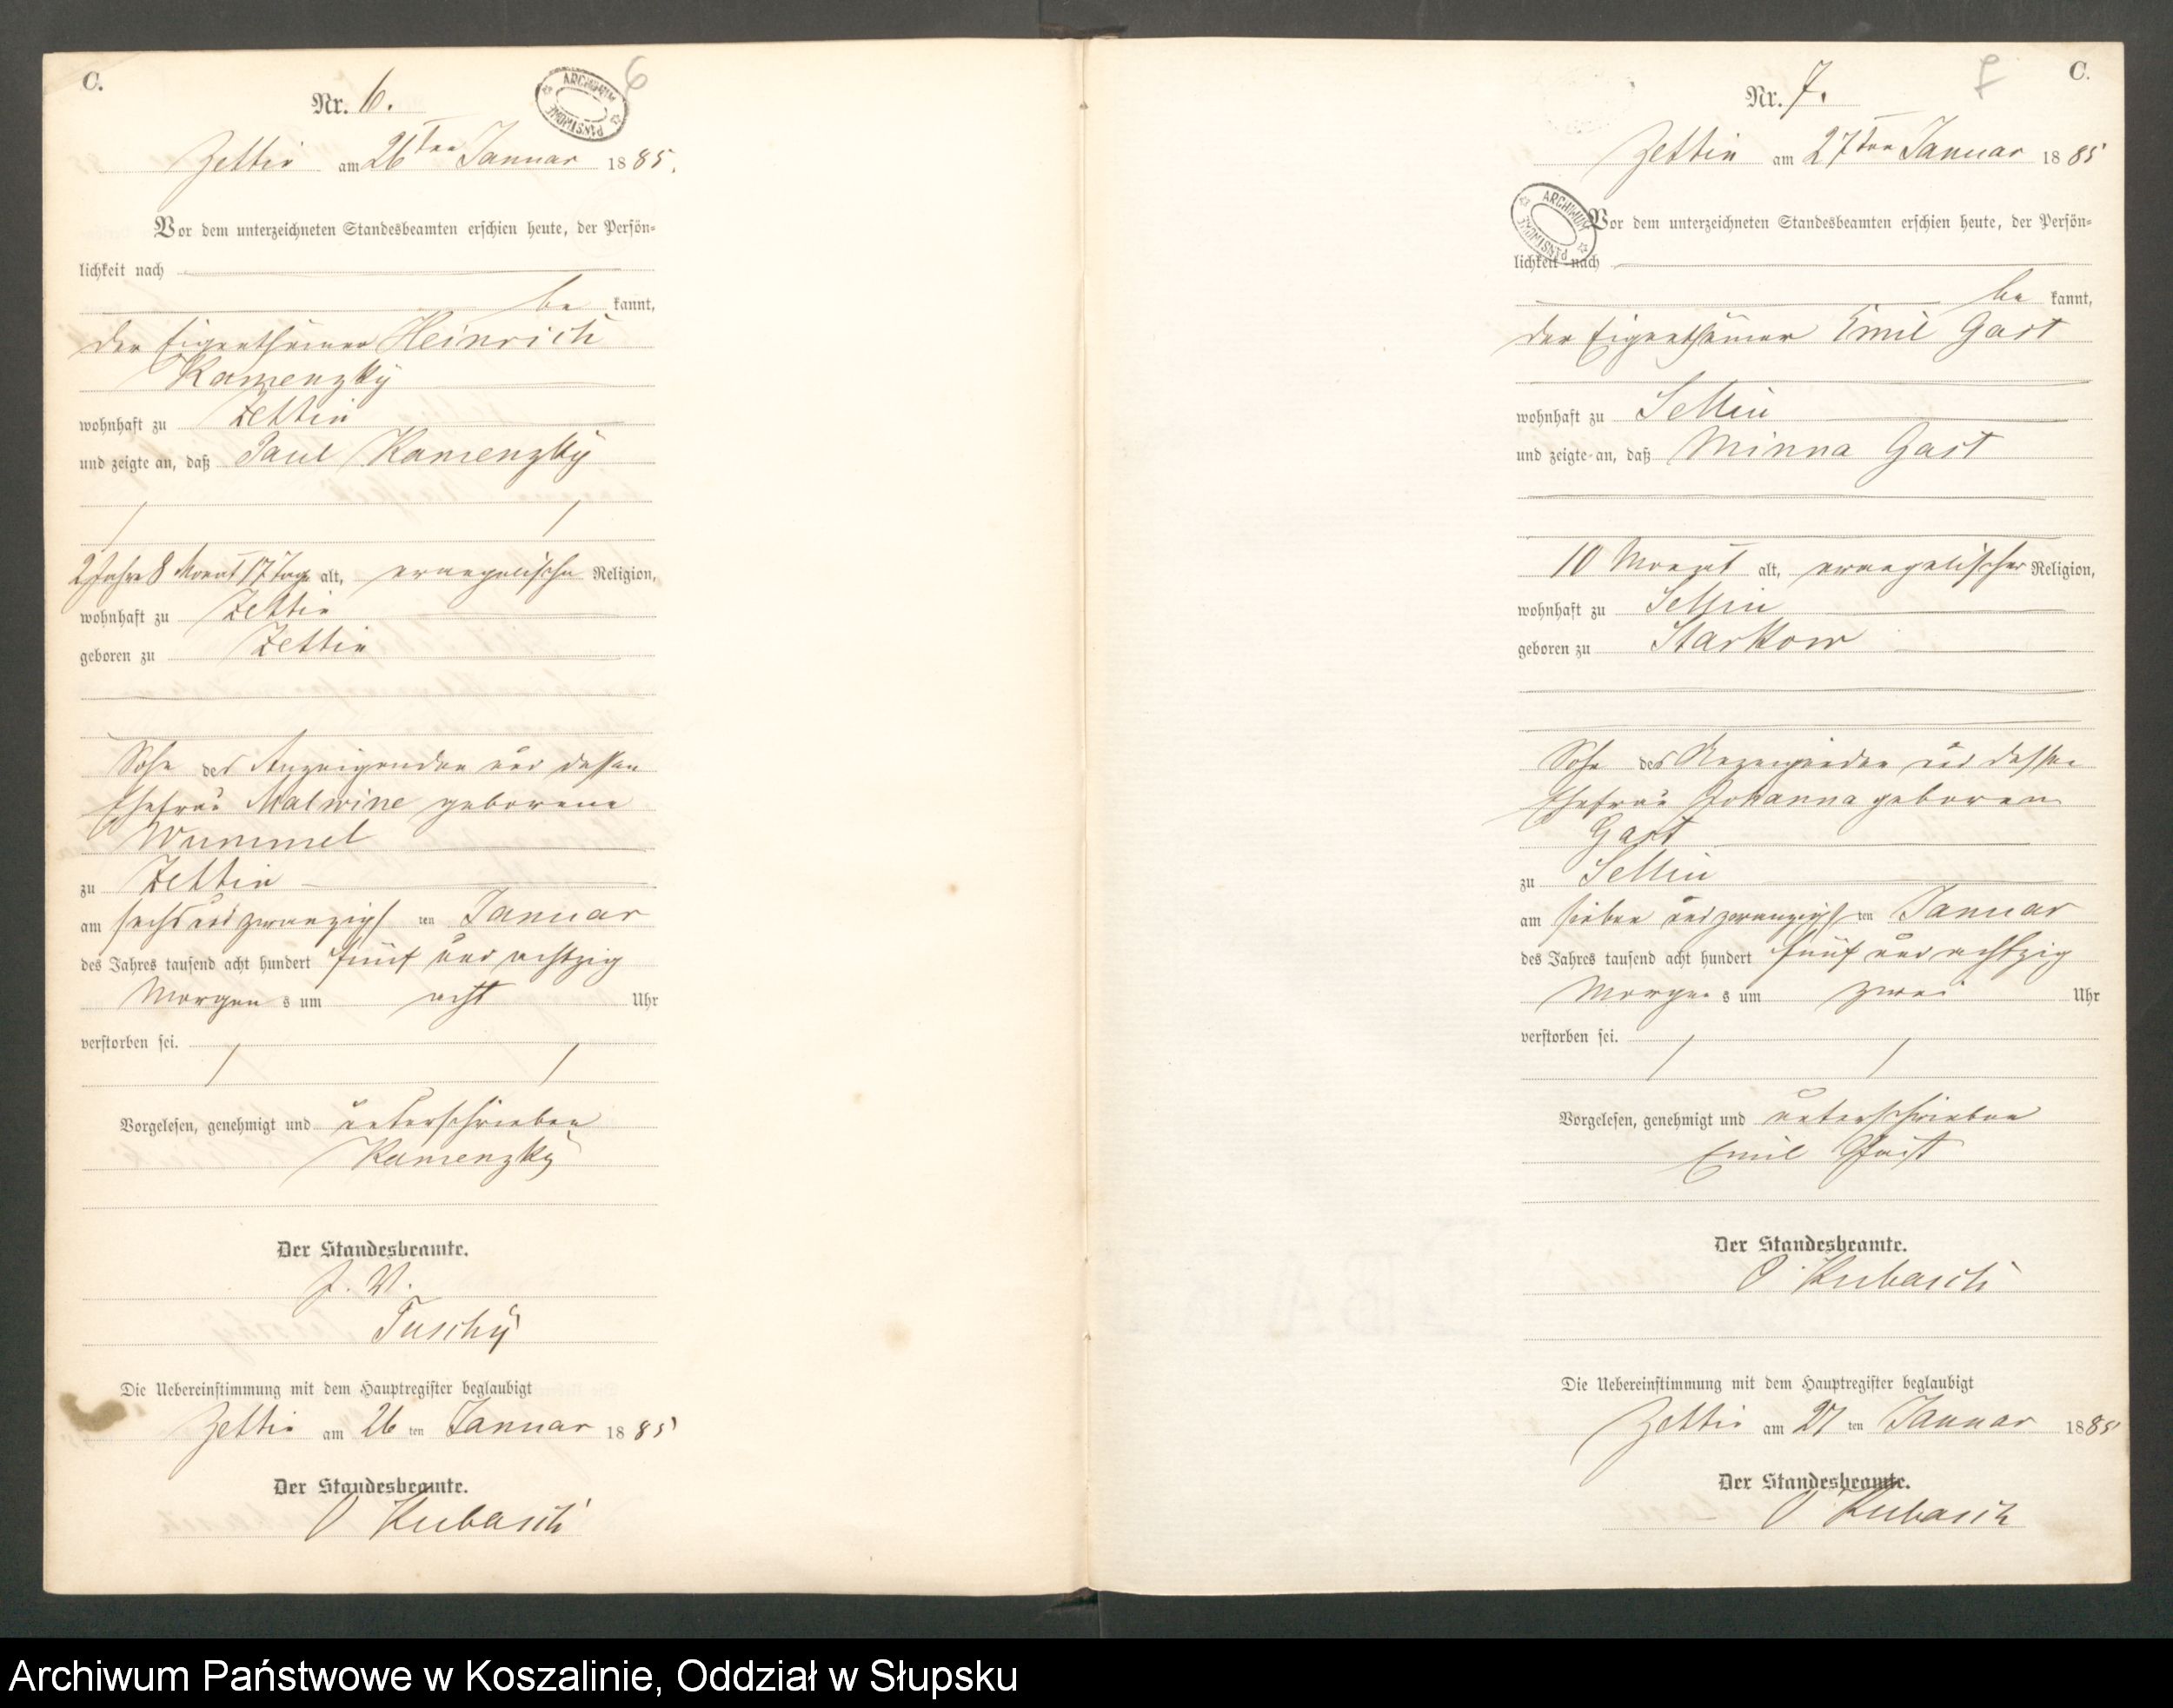 C.
Nr. 6.
6
ARCHIWUM PAŃSTWOWE
Zettin am 26ten Januar 1885.
Vor dem unterzeichneten Standesbeamten erschien heute, der Persön-
lichkeit nach
be kannt,
der Eigenthümer Heinrich
Kamenzky
wohnhaft zu Zettin
und zeigte an, daß Paul Kamenzky
2 Jahre 8 Monat 17 Tage alt, evangelischer Religion,
wohnhaft zu Zettin
geboren zu Zettin
Sohn des Anzeigenden und dessen
Ehefrau Malwine geborene
Wummel
zu Zettin
am sechs und zwanzigsten Januar
des Jahres tausend acht hundert fünf und achtzig
Morgens um acht Uhr
verstorben sei.
Vorgelesen, genehmigt und unterschrieben
Kamenzky
Der Standesbeamte.
J. V.
Tuschy
Die Uebereinstimmung mit dem Hauptregister beglaubigt
Zettin am 26 ten Januar 1885
Der Standesbeamte.
O Kubasch
C.
Nr. 7.
7
Zettin am 27ten Januar 1885
ARCHIWUM PAŃSTWOWE
Vor dem unterzeichneten Standesbeamten erschien heute, der Persön-
lichkeit nach
be kannt,
der Eigenthümer Emil Gast
wohnhaft zu Sellin
und zeigte an, daß Minna Gast
10 Monat alt, evangelischer Religion,
wohnhaft zu Sellin
geboren zu Starkow
Sohn des Anzeigenden und dessen
Ehefrau Johanna geboren
Gast
zu Sellin
am sieben und zwanzigsten Januar
des Jahres tausend acht hundert fünf und achtzig
Morgens um zwei Uhr
verstorben sei.
Vorgelesen, genehmigt und unterschrieben
Emil Gast
Der Standesbeamte.
O. Kubasch
Die Uebereinstimmung mit dem Hauptregister beglaubigt
Zettin am 27 ten Januar 1885
Der Standesbeamte.
O Kubasch
Archiwum Państwowe w Koszalinie, Oddział w Słupsku